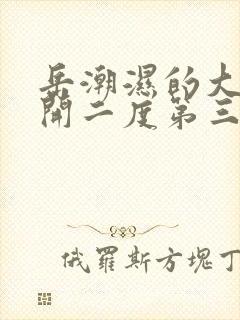 岳潮濕的大
開二度第三
俄羅斯方塊丁